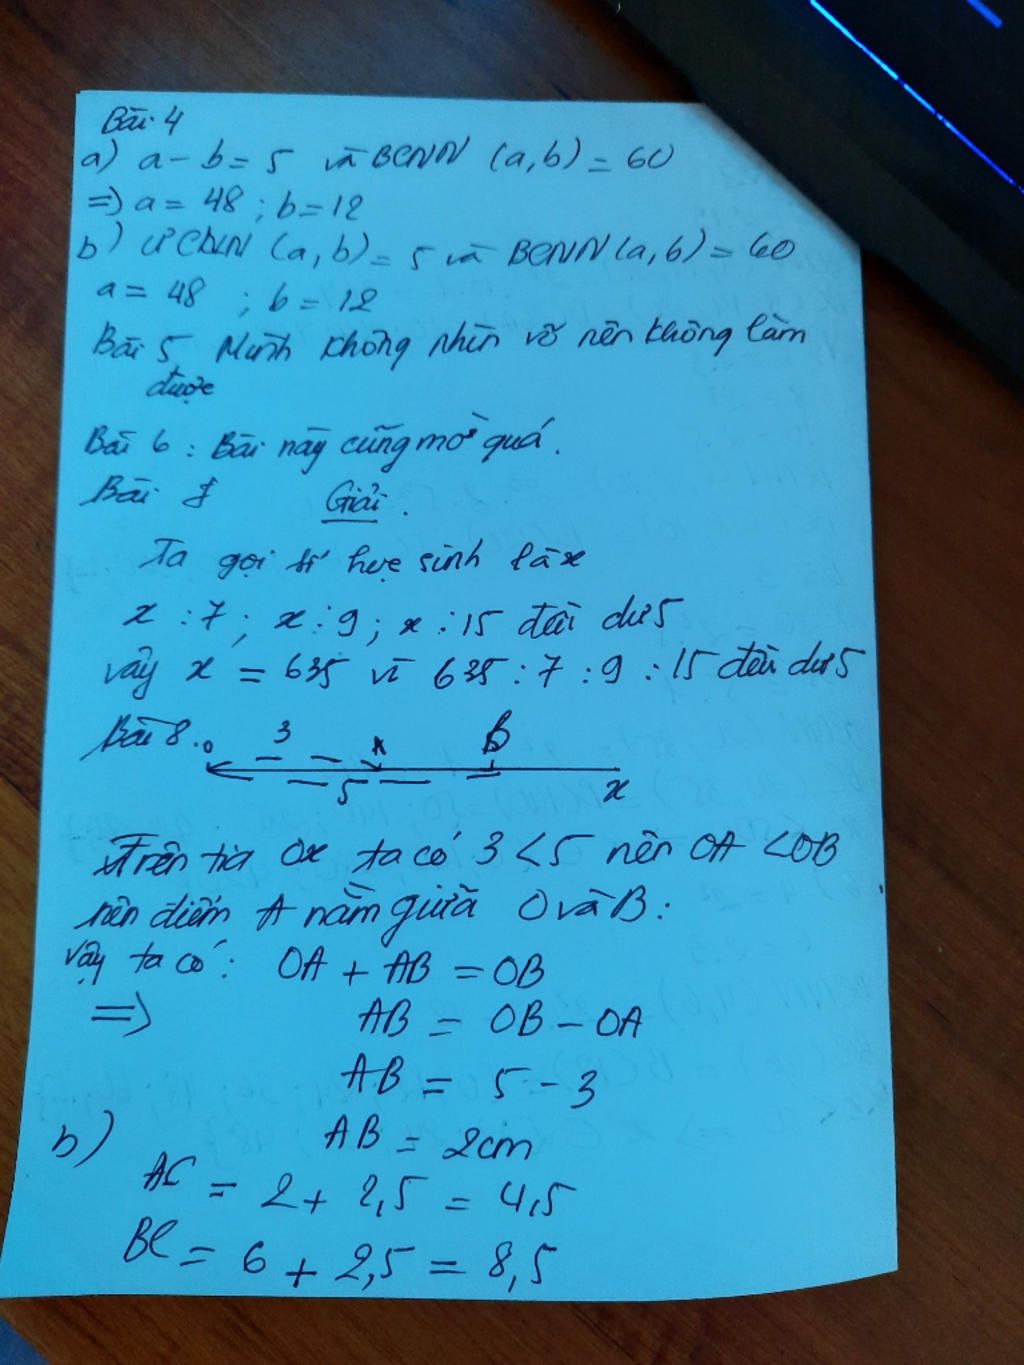 Bài 4
a) a - b = 5 và BCNN (a, b) = 60
=> a = 48 ; b = 12
b) ƯCLN (a, b) = 5 và BCNN (a, b) = 60
a = 48 ; b = 12
Bài 5 Mình không nhìn rõ nên không làm
được
Bài 6 : Bài này cũng mờ quá.
Bài
Giải.
Ta gọi số học sinh là x
x : 7 ; x : 9 ; x : 15 đều dư 5
vây x = 635 vì 635 : 7 : 9 : 15 đều dư 5
Bài 8.
O 3 A B
5 x
Trên tia Ox ta có 3 < 5 nên OA < OB
nên điểm A nằm giữa O và B :
Vậy ta có : OA + AB = OB
=> AB = OB - OA
AB = 5 - 3
AB = 2cm
b)
AC = 2 + 2,5 = 4,5
BC = 6 + 2,5 = 8,5